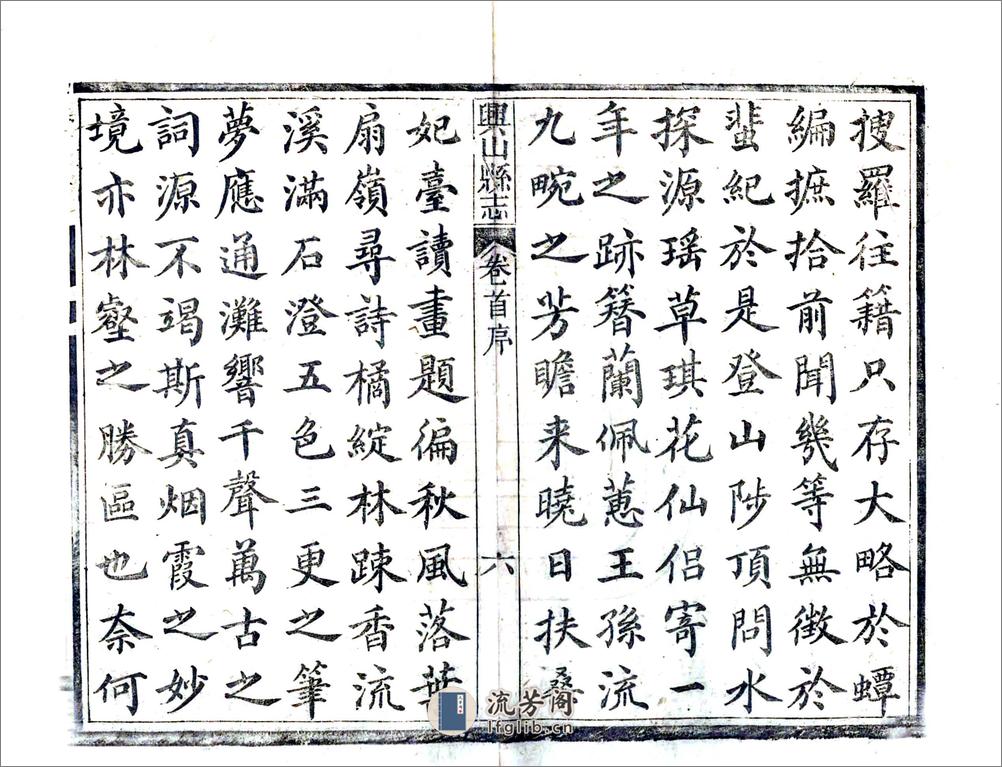 搜羅往籍只存大略於蟫
編摭拾前聞幾等無徵於
蜚紀於是登山陟頂問水
探源瑶草琪花仙侶寄一
年之跡簪蘭佩蕙王孫流
九畹之芳瞻来曉日扶桑
興山縣志 卷首序 六
妃臺讀畫題徧秋風落葉
扇嶺尋詩橘綻林疎香流
溪滿石澄五色三更之筆
夢應通灘響千聲萬古之
詞源不竭斯真烟霞之妙
境亦林壑之勝區也奈何
流芳阁
lfglib.cn